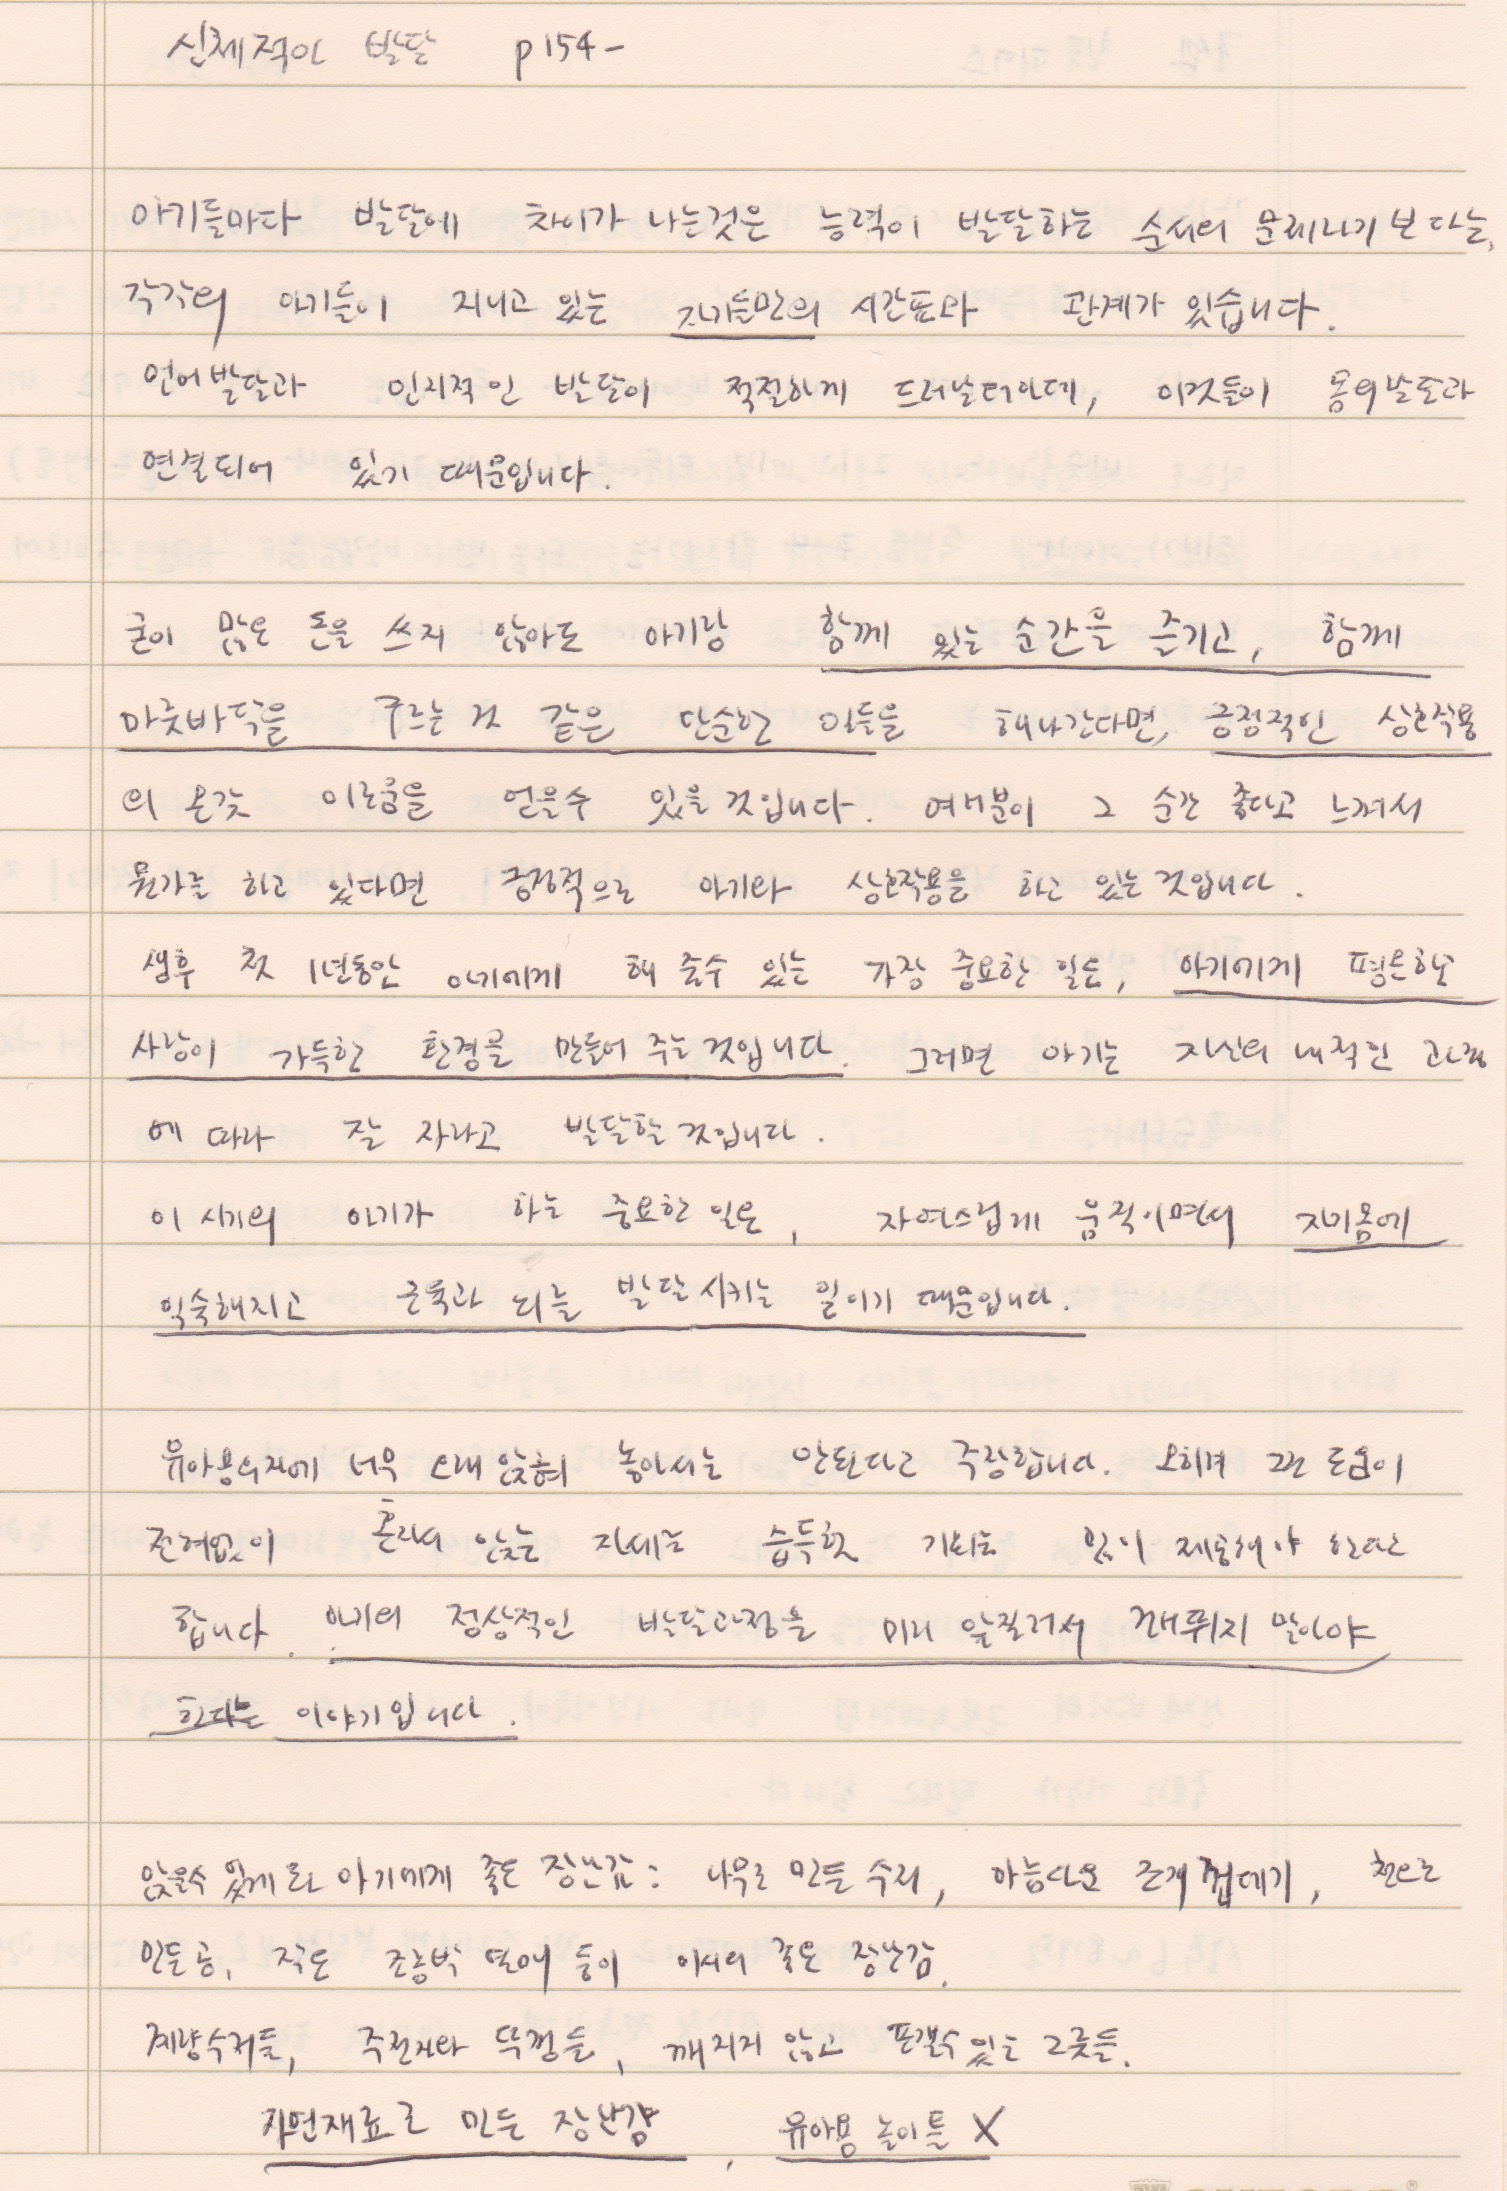 신체적인 발달 p154-
아기들마다 발달에 차이가 나는것은 능력이 발달하는 순서의 문제라기 보다는,
각각의 아기들이 지니고 있는 자기들만의 시간표와 관계가 있습니다.
언어발달과 인지적인 발달이 적절하게 드러날터인데, 이것들이 몸의발달과
연결되어 있기 때문입니다.
굳이 많은 돈을 쓰지 않아도 아기랑 함께 있는 순간을 즐기고, 함께
마룻바닥을 구르는 것 같은 단순한 일들을 해나간다면, 긍정적인 상호작용
의 온갖 이로움을 얻을수 있을것입니다. 여러분이 그 순간 좋다고 느껴서
뭔가를 하고 있다면 긍정적으로 아기와 상호작용을 하고 있는것입니다.
생후 첫 1년동안 아기에게 해 줄수 있는 가장 중요한 일은, 아기에게 평온하고
사랑이 가득한 환경을 만들어 주는것입니다. 그러면 아기는 자신의 내적인 과정
에 따라 잘 자라고 발달할것입니다.
이 시기의 아기가 하는 중요한 일은, 자연스럽게 움직이면서 자기몸에
익숙해지고 근육과 뇌를 발달시키는 일이기 때문입니다.
유아용의자에 너무 오래 앉혀 놓아서는 안된다고 주장합니다. 오히려 그런 도움이
전혀없이 혼자서 앉는 자세를 습득할 기회를 많이 제공해야 한다고
합니다. 아기의 정상적인 발달과정을 미리 앞질러서 건너뛰지 말아야
한다는 이야기입니다.
앉을수 있게 된 아기에게 좋은 장난감: 나무로 만든 수저, 아름다운 조개껍데기, 천으로
만든 공, 작은 조롱박 열매 등이 이시의 좋은 장난감.
계량수저들, 주전자와 뚜껑들, 깨지지 않고 포갤수있는 그릇들.
자연재료로 만든 장난감, 유아용 놀이틀 X